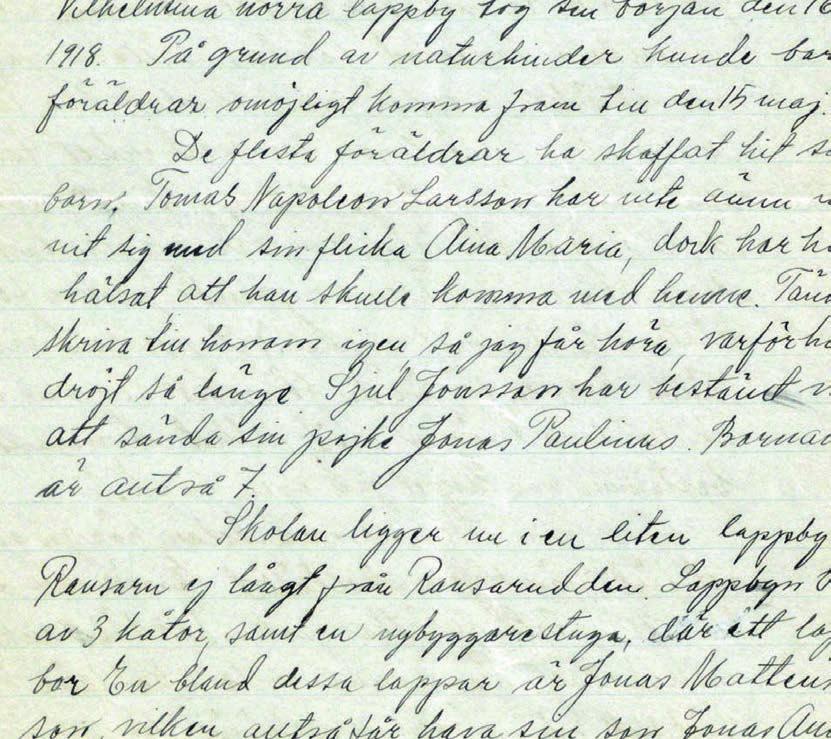 Vilhelmina norra lappby tog sin början den 16
1918. På grund av naturhinder kunde bar
föräldrar omöjligt komma fram till den 15 maj.
De flesta föräldrar ha skaffat hit s
barn. Tomas Napoleon Larsson har inte ännu
nit sig med sin flicka Aina Maria, dock har h
hälsat, att han skulle komma med henne. Tän
skriva till honom igen, så jag får höra, varför h
dröjt så länge. Sjul Jonsson har bestämt
att sända sin pojke Jonas Paulinus. Barna
är alltså 7.
Skolan ligger nu i en liten lappby
Ransarn ej långt från Ransarudden. Lappbyn
av 3 kåtor, samt en nybyggarestuga, där ett
bor. En bland dessa lappar är Jonas Matteus
son, vilken alltså får hava sin son Jonas